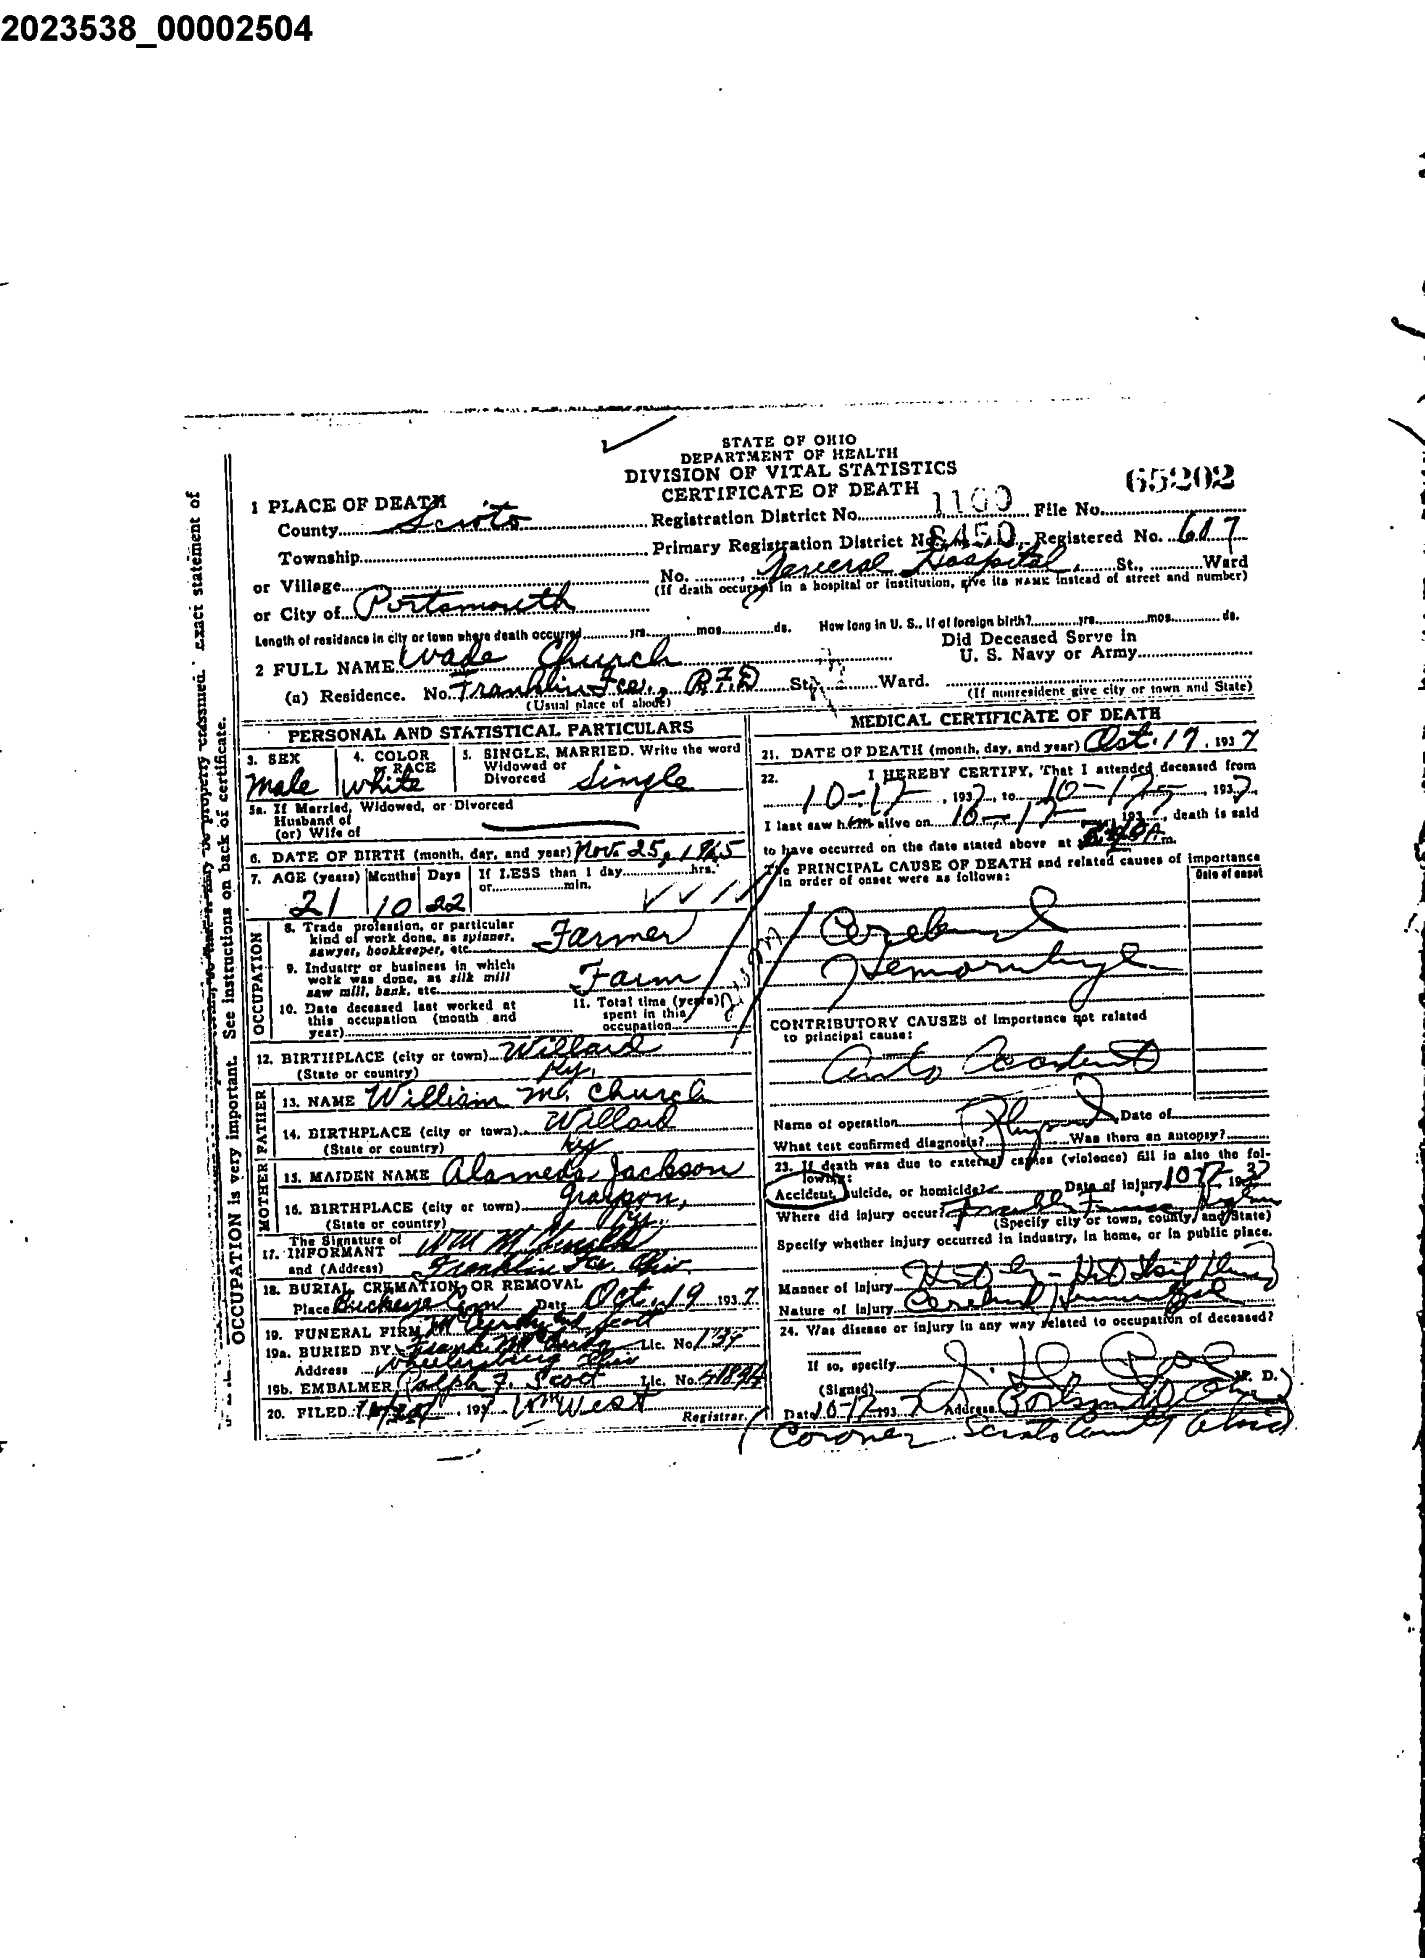 2023538_00002504
STATE OF OHIO
DEPARTMENT OF HEALTH
DIVISION OF VITAL STATISTICS
CERTIFICATE OF DEATH
65202
1 PLACE OF DEATH
County Scioto Registration District No. 1160 File No.
Township Primary Registration District No. 8450 Registered No. 617
or Village No. General Hospital, St., Ward
(If death occurred in a hospital or institution, give its NAME instead of street and number)
or City of Portsmouth
Length of residence in city or town where death occurred yrs. mos. ds. How long in U. S., if of foreign birth? yrs. mos. ds.
Did Deceased Serve in
U. S. Navy or Army
2 FULL NAME Wade Church
(a) Residence. No. Franklin Fce., RFD St., Ward.
(Usual place of abode) (If nonresident give city or town and State)
PERSONAL AND STATISTICAL PARTICULARS
3. SEX Male
4. COLOR or RACE White
5. SINGLE, MARRIED, Write the word Widowed or Divorced Single
5a. If Married, Widowed, or Divorced
Husband of
(or) Wife of
6. DATE OF BIRTH (month, day, and year) Nov. 25, 1915
7. AGE (years) Months Days If LESS than 1 day hrs.
or min.
21 10 22
OCCUPATION
8. Trade profession, or particular
kind of work done, as spinner,
sawyer, bookkeeper, etc. Farmer
9. Industry or business in which
work was done, as silk mill
saw mill, bank, etc. Farm
10. Date deceased last worked at
this occupation (month and
year)
11. Total time (years)
spent in this
occupation
12. BIRTHPLACE (city or town) Willard
(State or country) Ky.
FATHER
13. NAME William Mc. Church
14. BIRTHPLACE (city or town) Willard
(State or country) Ky
MOTHER
15. MAIDEN NAME Alameda Jackson
16. BIRTHPLACE (city or town) Grayson,
(State or country) Ky.
17. The Signature of
INFORMANT Wm M Church
and (Address) Franklin Fce. Ohio
18. BURIAL CREMATION OR REMOVAL
Place Buckeye Cem Date Oct. 19 1937
19. FUNERAL FIRM McCurdy and Scott
19a. BURIED BY Frank McCurdy Lic. No.
Address Wheelersburg Ohio
19b. EMBALMER Ralph F. Scott Lic. No.
20. FILED 193 Wm West
Registrar.
MEDICAL CERTIFICATE OF DEATH
21. DATE OF DEATH (month, day, and year) Oct. 17, 1937
22. I HEREBY CERTIFY, That I attended deceased from
10-17, 1937, to 10-17, 1937,
I last saw him alive on 10-17, 1937, death is said
to have occurred on the date stated above at A m.
The PRINCIPAL CAUSE OF DEATH and related causes of importance
in order of onset were as follows: Date of onset
Cerebral
Hemorrhage
CONTRIBUTORY CAUSES of importance not related
to principal cause:
Auto Accident
Name of operation Date of
What test confirmed diagnosis? Physical Was there an autopsy?
23. If death was due to external causes (violence) fill in also the fol-
lowing:
Accident, suicide, or homicide? Date of injury 10-17-1937
Where did injury occur? Franklin Furnace
(Specify city or town, county, and State)
Specify whether injury occurred in industry, in home, or in public place.
Manner of injury
Nature of injury Cerebral Hemorrhage
24. Was disease or injury in any way related to occupation of deceased?
If so, specify
(Signed) M. D.
Date 10-17-1937 Address Portsmouth Ohio
Coroner Scioto County Ohio
OCCUPATION is very important. See instructions on back of certificate.
properly classified. Exact statement of